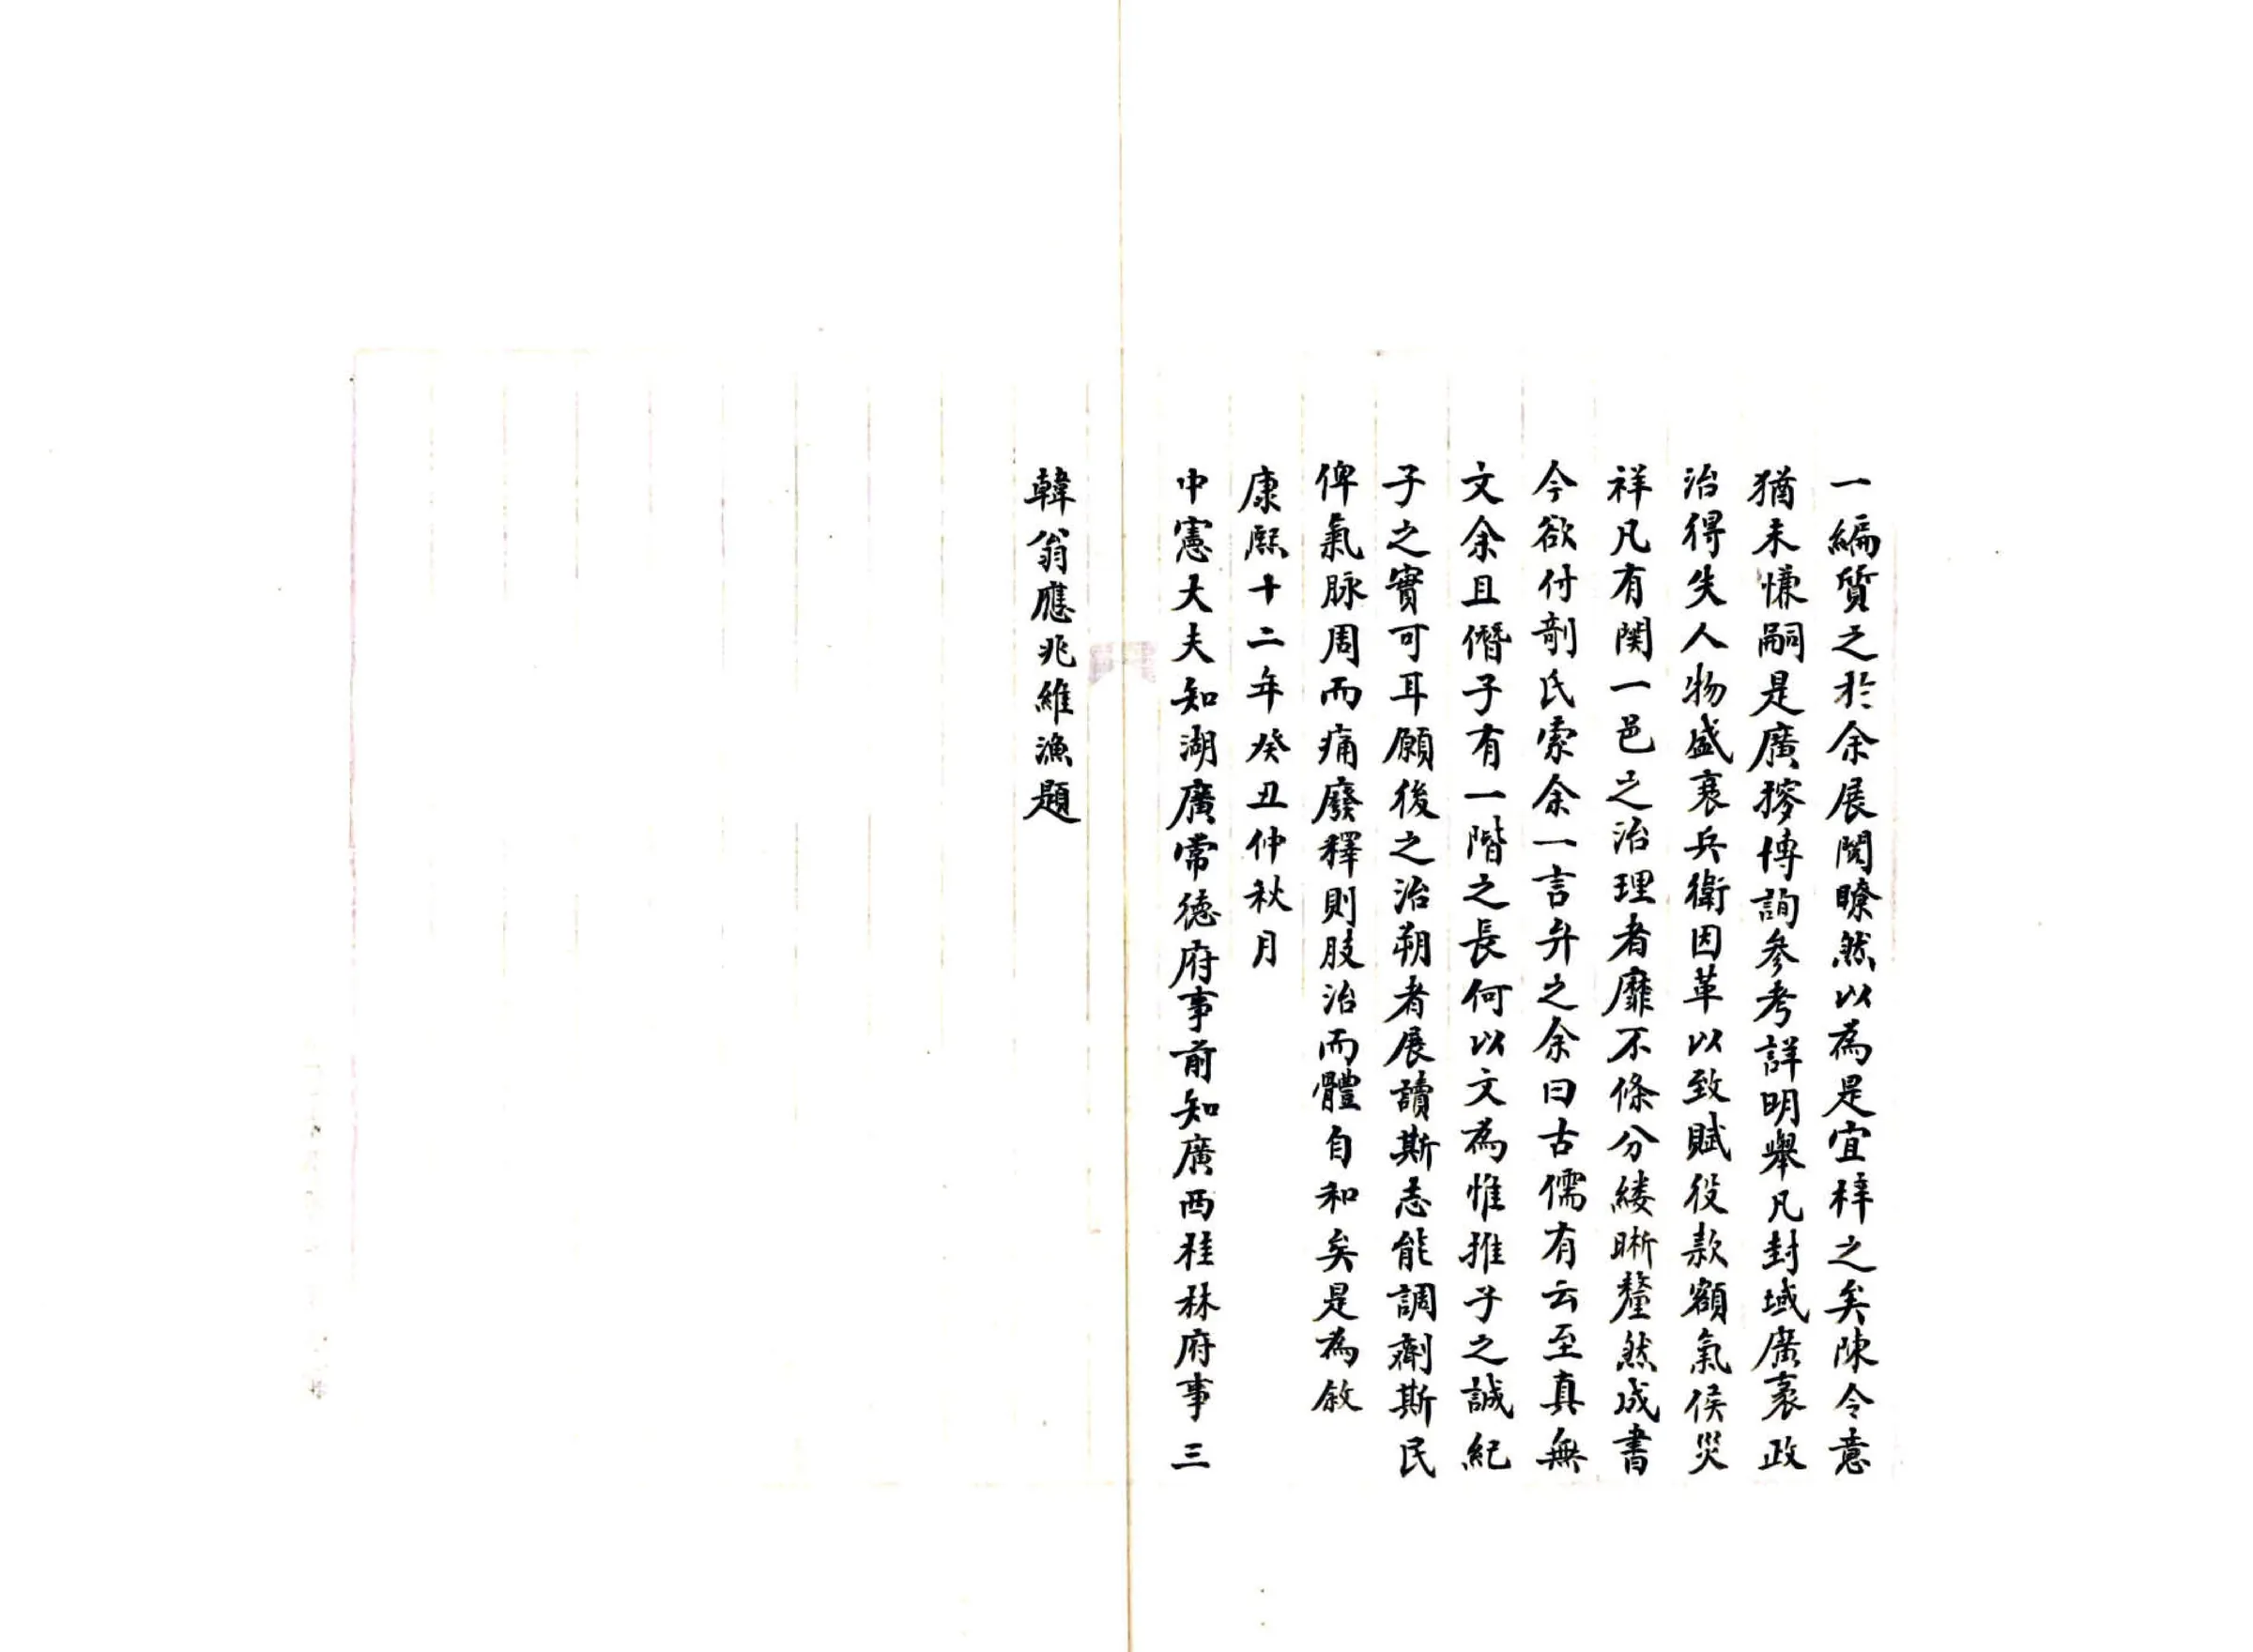 一編質之於余展閱瞭然以為是宜梓之矣陳令意
猶未慊嗣是廣搜博詢參考詳明舉凡封域廣袤政
治得失人物盛衰兵衛因革以致賦役款額氣侯災
祥凡有関一邑之治理者靡不條分縷晰釐然成書
今欲付剞氏索余一言弁之余曰古儒有云至真無
文余且僭子有一階之長何以文為惟推子之誠紀
子之實可耳願後之治朔者展讀斯志能調劑斯民
俾氣脉周而痛廢釋則肢治而體自和矣是為敘
康熙十二年癸丑仲秋月
中憲大夫知湖廣常德府事前知廣西桂林府事三
韓翁應兆維漁題